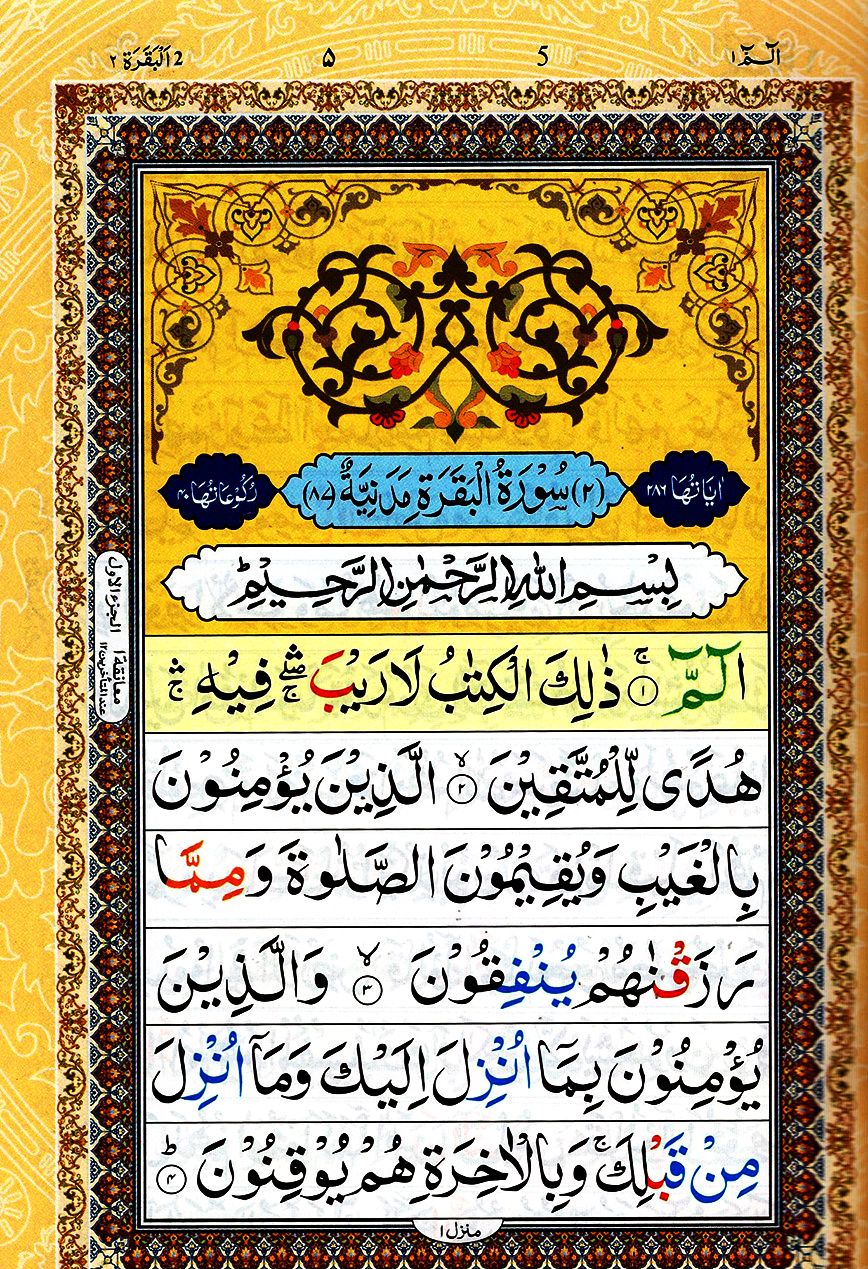 الٓمّٓ ١ 5 ۵ 2 اَلْبَقَرَة ٢
اٰيَاتُهَا ٢٨٦ (٢) سُوْرَةُ الْبَقَرَةِ مَدَنِيَّةٌ (٨٧) رُكُوْعَاتُهَا ٤٠
بِسْمِ اللّٰهِ الرَّحْمٰنِ الرَّحِيْمِ ؕ
الٓمّٓ ۚ ١ ذٰلِكَ الْكِتٰبُ لَا رَيْبَ ۛۖۚ فِيْهِ ۛۚ
هُدًى لِّلْمُتَّقِيْنَ ۙ ٢ الَّذِيْنَ يُؤْمِنُوْنَ
بِالْغَيْبِ وَيُقِيْمُوْنَ الصَّلٰوةَ وَمِمَّا
رَزَقْنٰهُمْ يُنْفِقُوْنَ ۙ ٣ وَالَّذِيْنَ
يُؤْمِنُوْنَ بِمَاۤ اُنْزِلَ اِلَيْكَ وَمَاۤ اُنْزِلَ
مِنْ قَبْلِكَ ۚ وَبِالْاٰخِرَةِ هُمْ يُوْقِنُوْنَ ؕ ۴
الجزء الاول
معانقة ١
عند المتأخرين ١٢
منزل ١